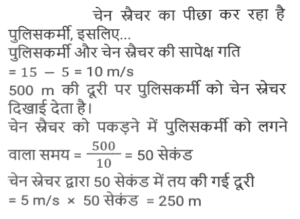 चेन स्नैचर का पीछा कर रहा है
पुलिसकर्मी, इसलिए...
पुलिसकर्मी और चेन स्नैचर की सापेक्ष गति
= 15 − 5 = 10 m/s
500 m की दूरी पर पुलिसकर्मी को चेन स्नेचर
दिखाई देता है।
चेन स्नैचर को पकड़ने में पुलिसकर्मी को लगने
वाला समय = 500/10 = 50 सेकंड
चेन स्नेचर द्वारा 50 सेकंड में तय की गई दूरी
= 5 m/s × 50 सेकंड = 250 m